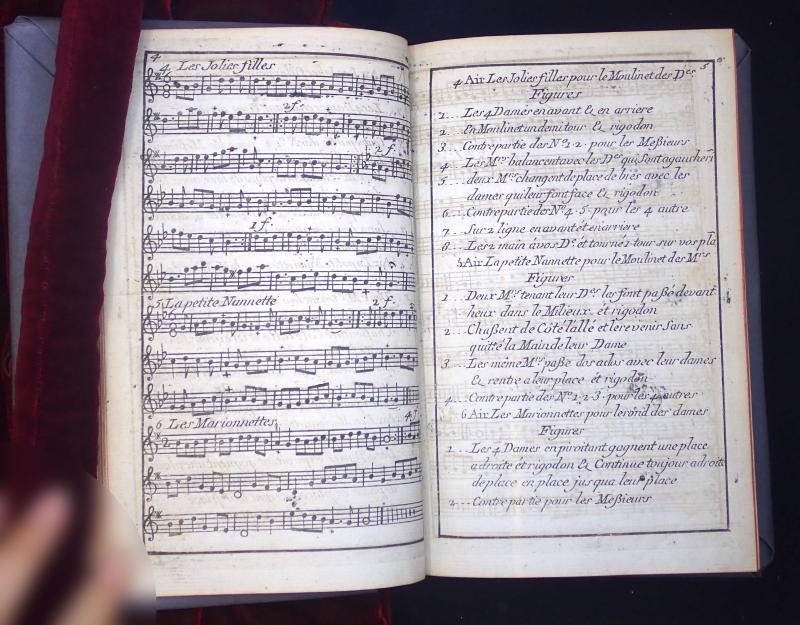 4
4 Les Jolies filles
2 f.
2 f.
1 f.
5 La petite Nannette 2 f.
6 Les Marionnettes 4 f.
5
4 Air Les Jolies filles pour le Moulinet des D.es
Figures
1... Les 4 Dames en avant & en arriere
2... En Moulinet un demi tour & rigodon
3... Contre partie des N.o 1. 2. pour les Meßieurs
4... Les M.rs balancent avec les D.es qui sont a gauche ri
5... deux M.rs changent de place de biés avec les
dames qui leur font face & rigodon
6... Contre partie des N.o 4. 5. pour les 4 autre
7... Sur 2 ligne en avant et en arriere
8... Les 2 main a vos D.es et tourné 1 tour sur vos pla
5 Air La petite Nannette pour le Moulinet des M.rs
Figures
1... Deux M.rs tenant leur D.es las font paßé devant
heux dans le Milieux et rigodon
2... Chaßent de Côté lallé et le revenir Sans
quitté la Main de leur Dame
3... Les même M.rs paße dos a dos avec leur dames
& rentre a leur place et rigodon
4... Contre partie des N.o 1. 2. 3. pour les 4 autres
6 Air Les Marionnettes pour le rond des dames
Figures
1... Les 4 Dames en piroitant gagnent une place
a droite et rigodon & Continue toujour a droite
de place en place jus qua leur place
2... Contre partie pour les Meßieurs